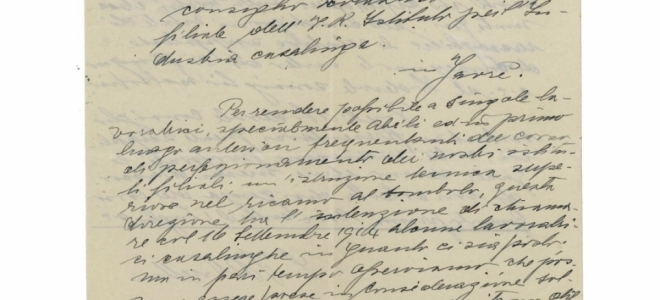 consiglio
filiale dell' I. R. Istituto per l'In-
dustria casalinga.
in Javrè.
Per rendere possibile a singole la-
voratrici, specialmente abili ed in primo
luogo anteriori frequentanti del corso
di perfezionamento dei nostri istitu-
ti filiali un'istruzione tecnica supe-
riore nel ricamo al tombolo, questa
direzione ha l'intenzione di chiama-
re col 16 Settembre 1914 alcune lavoratri-
ci casalinghe in quanto ci sia posto.
in pari tempo osserviamo che pos-
essere prese in considerazione sol-